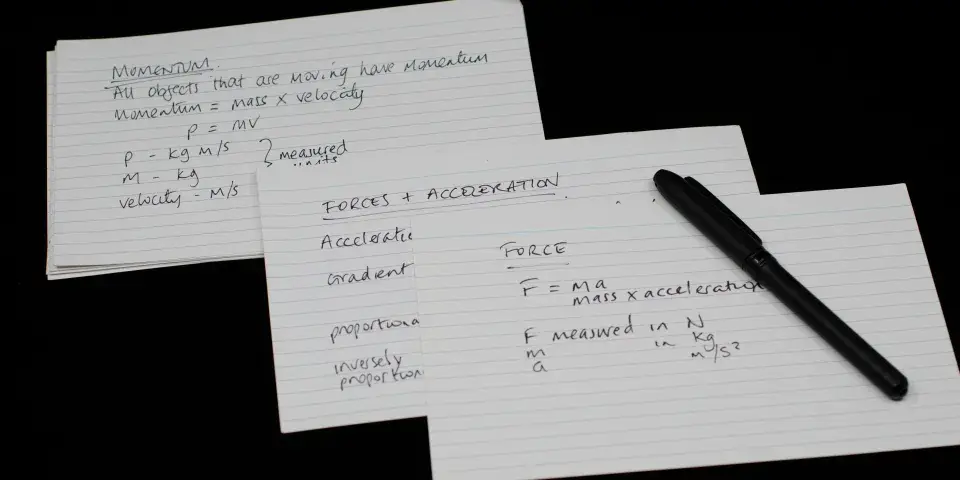 MOMENTUM.
All objects that are moving have momentum
Momentum = mass x velocity
p = mv
p - kg m/s
m - kg
velocity - m/s
} measured
units
FORCES + ACCELERATION
Acceleratio
Gradient
proportiona
inversely
proportion
FORCE
F = ma
mass x acceleration
F measured in N
m in kg
a m/s²